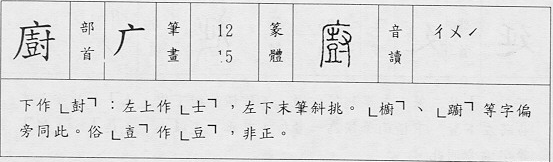 廚 部首 广 筆畫 12 15 篆體 廚 音讀 ㄔㄨˊ
下作「尌」：左上作「士」，左下末筆斜挑。「櫥」、「躕」等字偏
旁同此。俗「壴」作「豆」，非正。